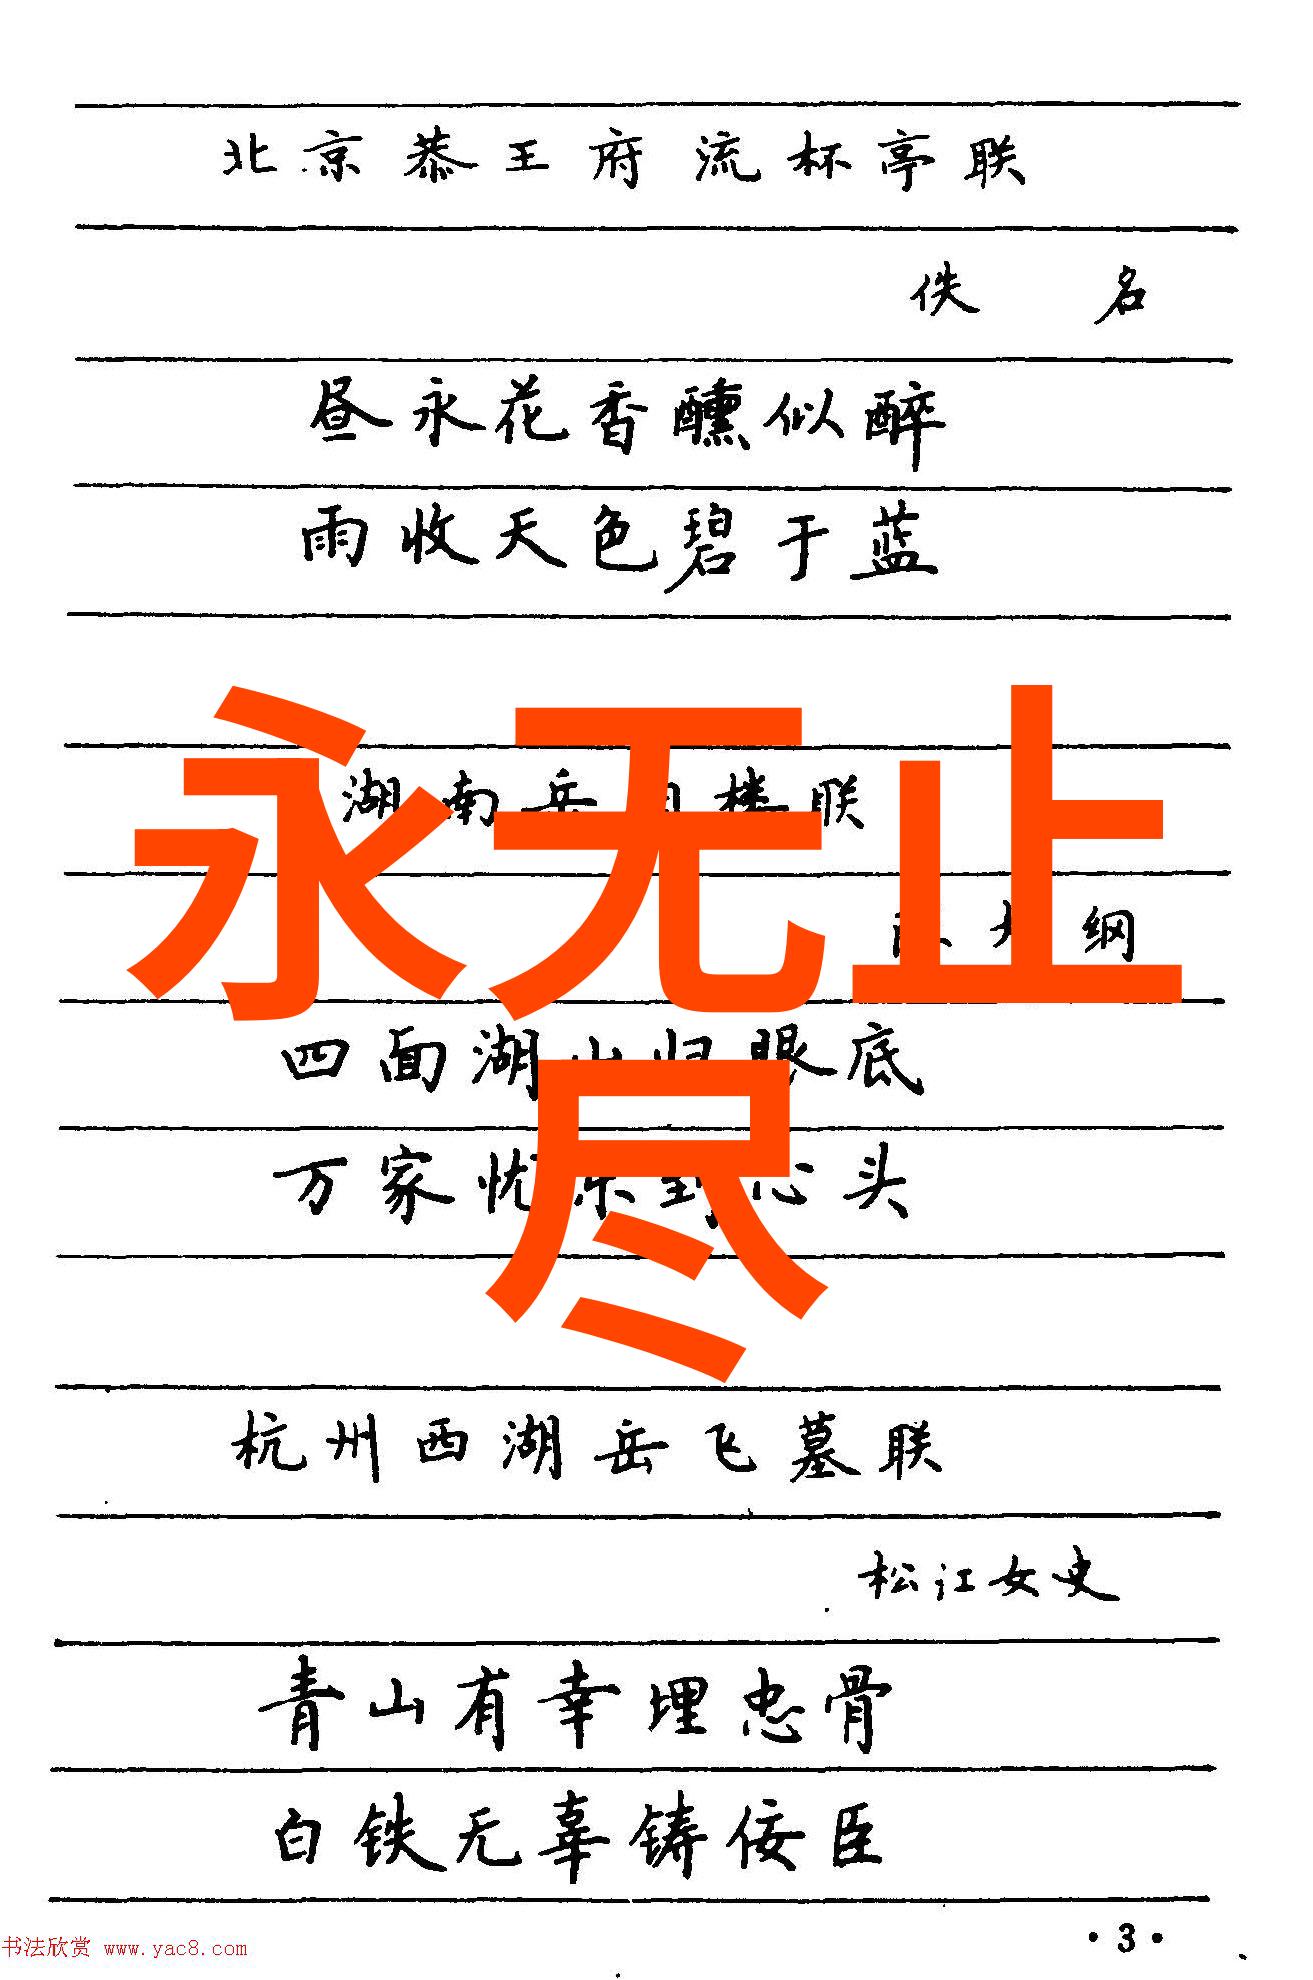 北京恭王府流杯亭联
佚 名
昼永花香醺似醉
雨收天色碧于蓝
永无止
湖南岳 楼联
纲
四面湖山归眼底
尽
万家忧乐到心头
杭州西湖岳飞墓联
松江女史
青山有幸埋忠骨
白铁无辜铸佞臣
·3·
书法欣赏 www.yac8.com